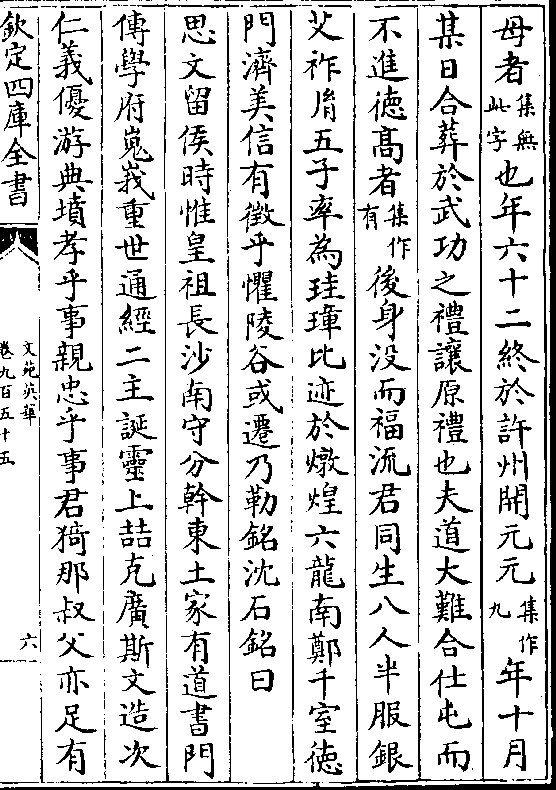 母者集無此字也年六十二終於許州開元元集作九年十月
某日合葬於武功之禮讓原禮也夫道大難合仕屯而
不進徳髙者集作有後身没而福流君同生八人半服銀
艾祚𦙍五子率為珪璋比迹於燉煌六龍南鄭千室徳
門濟美信有徴乎懼陵谷或遷乃勒銘沈石銘曰
思文留侯時惟皇祖長沙南守分幹東土家有道書門
傳學府嵬峩重世通經二主誕靈上喆克廣斯文造次
仁義優游典墳孝乎事親忠乎事君猗那叔父亦足有
欽定四庫全書
文苑英華
卷九百五十五
六